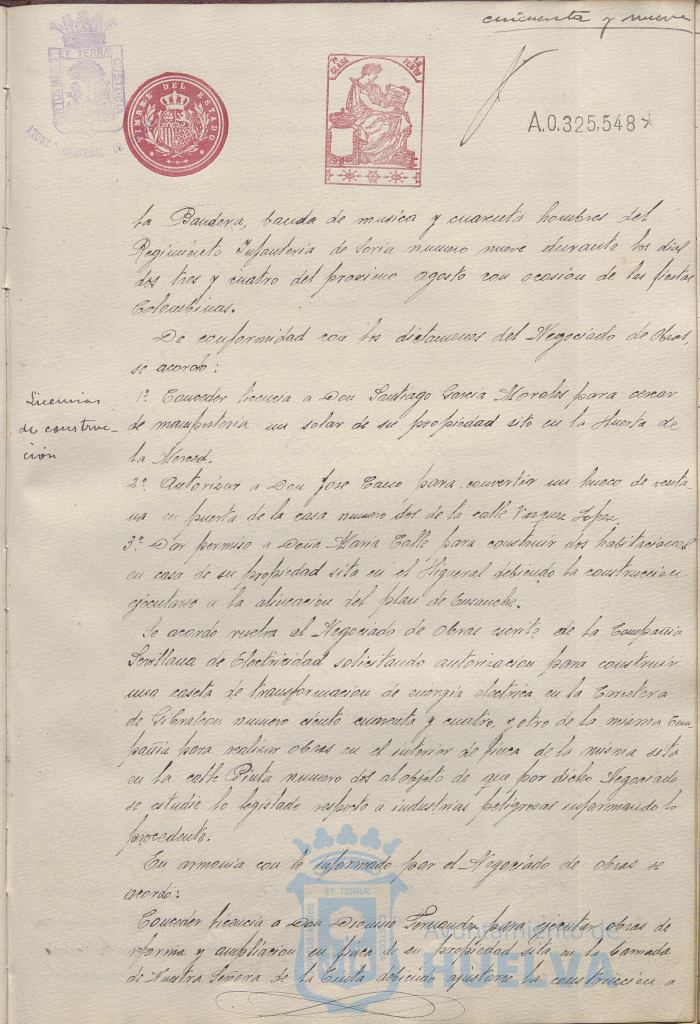 cincuenta y nueve
ET TERRÆ CUSTODIA
PORTUS MARIS
TIMBRE DEL ESTADO
7ª CLASE 1 PESETA
A.0.325,548
la Bandera, banda de musica y cuarenta hombres del
Regimiento Infanteria de Soria numero nueve durante los dias
dos tres y cuatro del proximo agosto con ocasion de las fiestas
Colombinas.
De conformidad con los dictamenes del Negociado de Obras,
se acordó:
Licencias
de construc-
ción
1º Conceder licencia a Don Santiago Garcia Morales para cercar
de mamposteria un solar de su propiedad sito en la Huerta de
la Merced.
2º Autorizar a Don Jose Cano para convertir un hueco de venta
na en puerta de la casa numero dos de la calle Vazquez Lopez.
3º Dar permiso a Doña Maria Calle para construir dos habitaciones
en casa de su propiedad sita en el Higueral debiendo la construccion
ejecutarse a la alineacion del plan de Ensanche.
Se acordo vuelva al Negociado de Obras escrito de la Compañia
Sevillana de Electricidad solicitando autorizacion para construir
una caseta de transformacion de energia electrica en la Carretera
de Gibraleon numero ciento cuarenta y cuatro, y otro de la misma Com-
pañia para realizar obras en el interior de finca de la misma sita
en la calle Pinta numero dos al objeto de que por dicho Negociado
se estudie lo legislado respecto a industrias peligrosas informando lo
procedente.
En armonia con lo informado por el Negociado de obras se
acordó:
Conceder licencia a Don Dionisio Fernandez para ejecutar obras de
reforma y ampliacion en finca de su propiedad sita en la Barriada
de Nuestra Señora de la Cinta debiendo ajustarse la construccion a
Ayuntamiento de
HUELVA